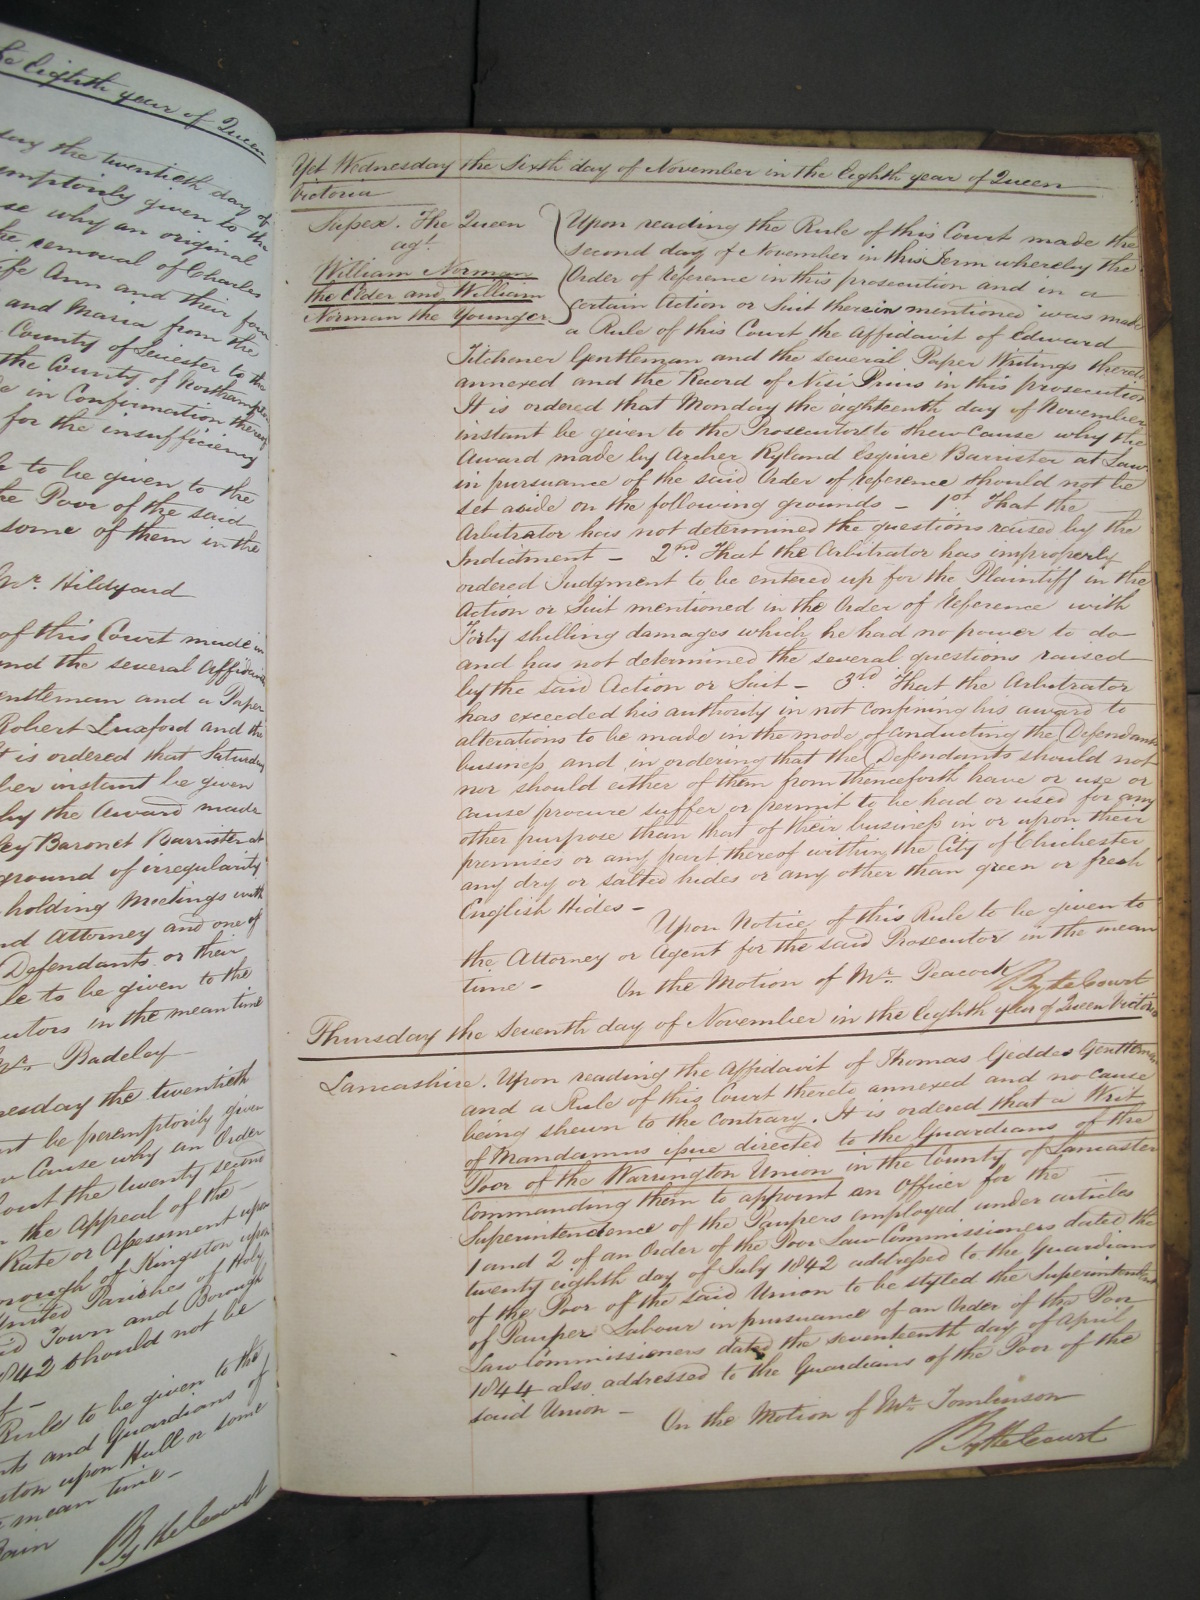 the Eighth year of Queen
day the twentieth day of
emptorily given to the
se why an original
the removal of Charles
fe Ann and their four
and Maria from the
County of Leicester to the
the County of Northampton
de in Confirmation thereof
for the insufficiency
le to be given to the
he Poor of the said
some of them in the
Mr. Hildyard
of this Court made in
nd the several Affidavits
entleman and a Paper
Robert Luxford and the
It is ordered that Saturday
ber instant be given
why the Award made
ley Baronet Barrister at
ground of irregularity
holding Meetings with
nd Attorney and one of
Defendants or their
le to be given to the
utors in the mean time
Mr. Badeley
nesday the twentieth
nt be peremptorily given
w Cause why an Order
Court the twenty second
n the Appeal of the
Rate or Assessment upon
orough of Kingston upon
United Parishes of Holy
id Town and Borough
1842 should not be
Rule to be given to the
nts and Guardians of
ston upon Hull or some
mean time
By the Court
Yet Wednesday the Sixth day of November in the Eighth year of Queen
Victoria
Supex. The Queen
agt.
William Norman
the Elder and William
Norman the Younger
Upon reading the Rule of this Court made the
second day of November in this Term whereby the
Order of Reference in this prosecution and in a
certain Action or Suit therein mentioned was made
a Rule of this Court the affidavit of Edward
Titchener Gentleman and the several Paper Writings thereto
annexed and the Record of Nisi Prius in this prosecution
It is ordered that Monday the eighteenth day of November
instant be given to the Prosecutor to shew Cause why the
Award made by Archer Ryland Esquire Barrister at Law
in pursuance of the said Order of reference should not be
set aside on the following grounds – 1st. That the
Arbitrator has not determined the questions raised by the
Indictment – 2nd. That the Arbitrator has improperly
ordered Judgment to be entered up for the Plaintiff in the
Action or Suit mentioned in the Order of Reference with
Forty shilling damages which he had no power to do
and has not determined the several questions raised
by the said Action or Suit – 3rd. That the Arbitrator
has exceeded his authority in not confining his award to
alterations to be made in the mode of Conducting the Defendants
business and in ordering that the Defendants should not
nor should either of them from thenceforth have or use or
cause procure suffer or permit to be had or used for any
other purpose than that of their business in or upon their
premises or any part thereof within the City of Chichester
any dry or salted hides or any other than green or fresh
English Hides –
Upon Notice of this Rule to be given to
the Attorney or Agent for the said Prosecutor in the mean
time – On the Motion of Mr. Peacock By the Court
Thursday the Seventh day of November in the Eighth year of Queen Victoria
Lancashire. Upon reading the Affidavit of Thomas Geddes Gentleman
and a Rule of this Court thereto annexed and no cause
being shewn to the contrary. It is ordered that a Writ
of Mandamus issue directed to the Guardians of the
Poor of the Warrington Union in the County of Lancaster
Commanding them to appoint an Officer for the
Superintendence of the Paupers employed under articles
1 and 2 of an Order of the Poor Law Commissioners dated the
twenty eighth day of July 1842 addressed to the Guardians
of the Poor of the said Union to be styled the Superintendent
of Pauper Labour in pursuance of an Order of the Poor
Law Commissioners dated the seventeenth day of April
1844 also addressed to the Guardians of the Poor of the
said Union – On the Motion of Mr. Tomlinson
By the Court